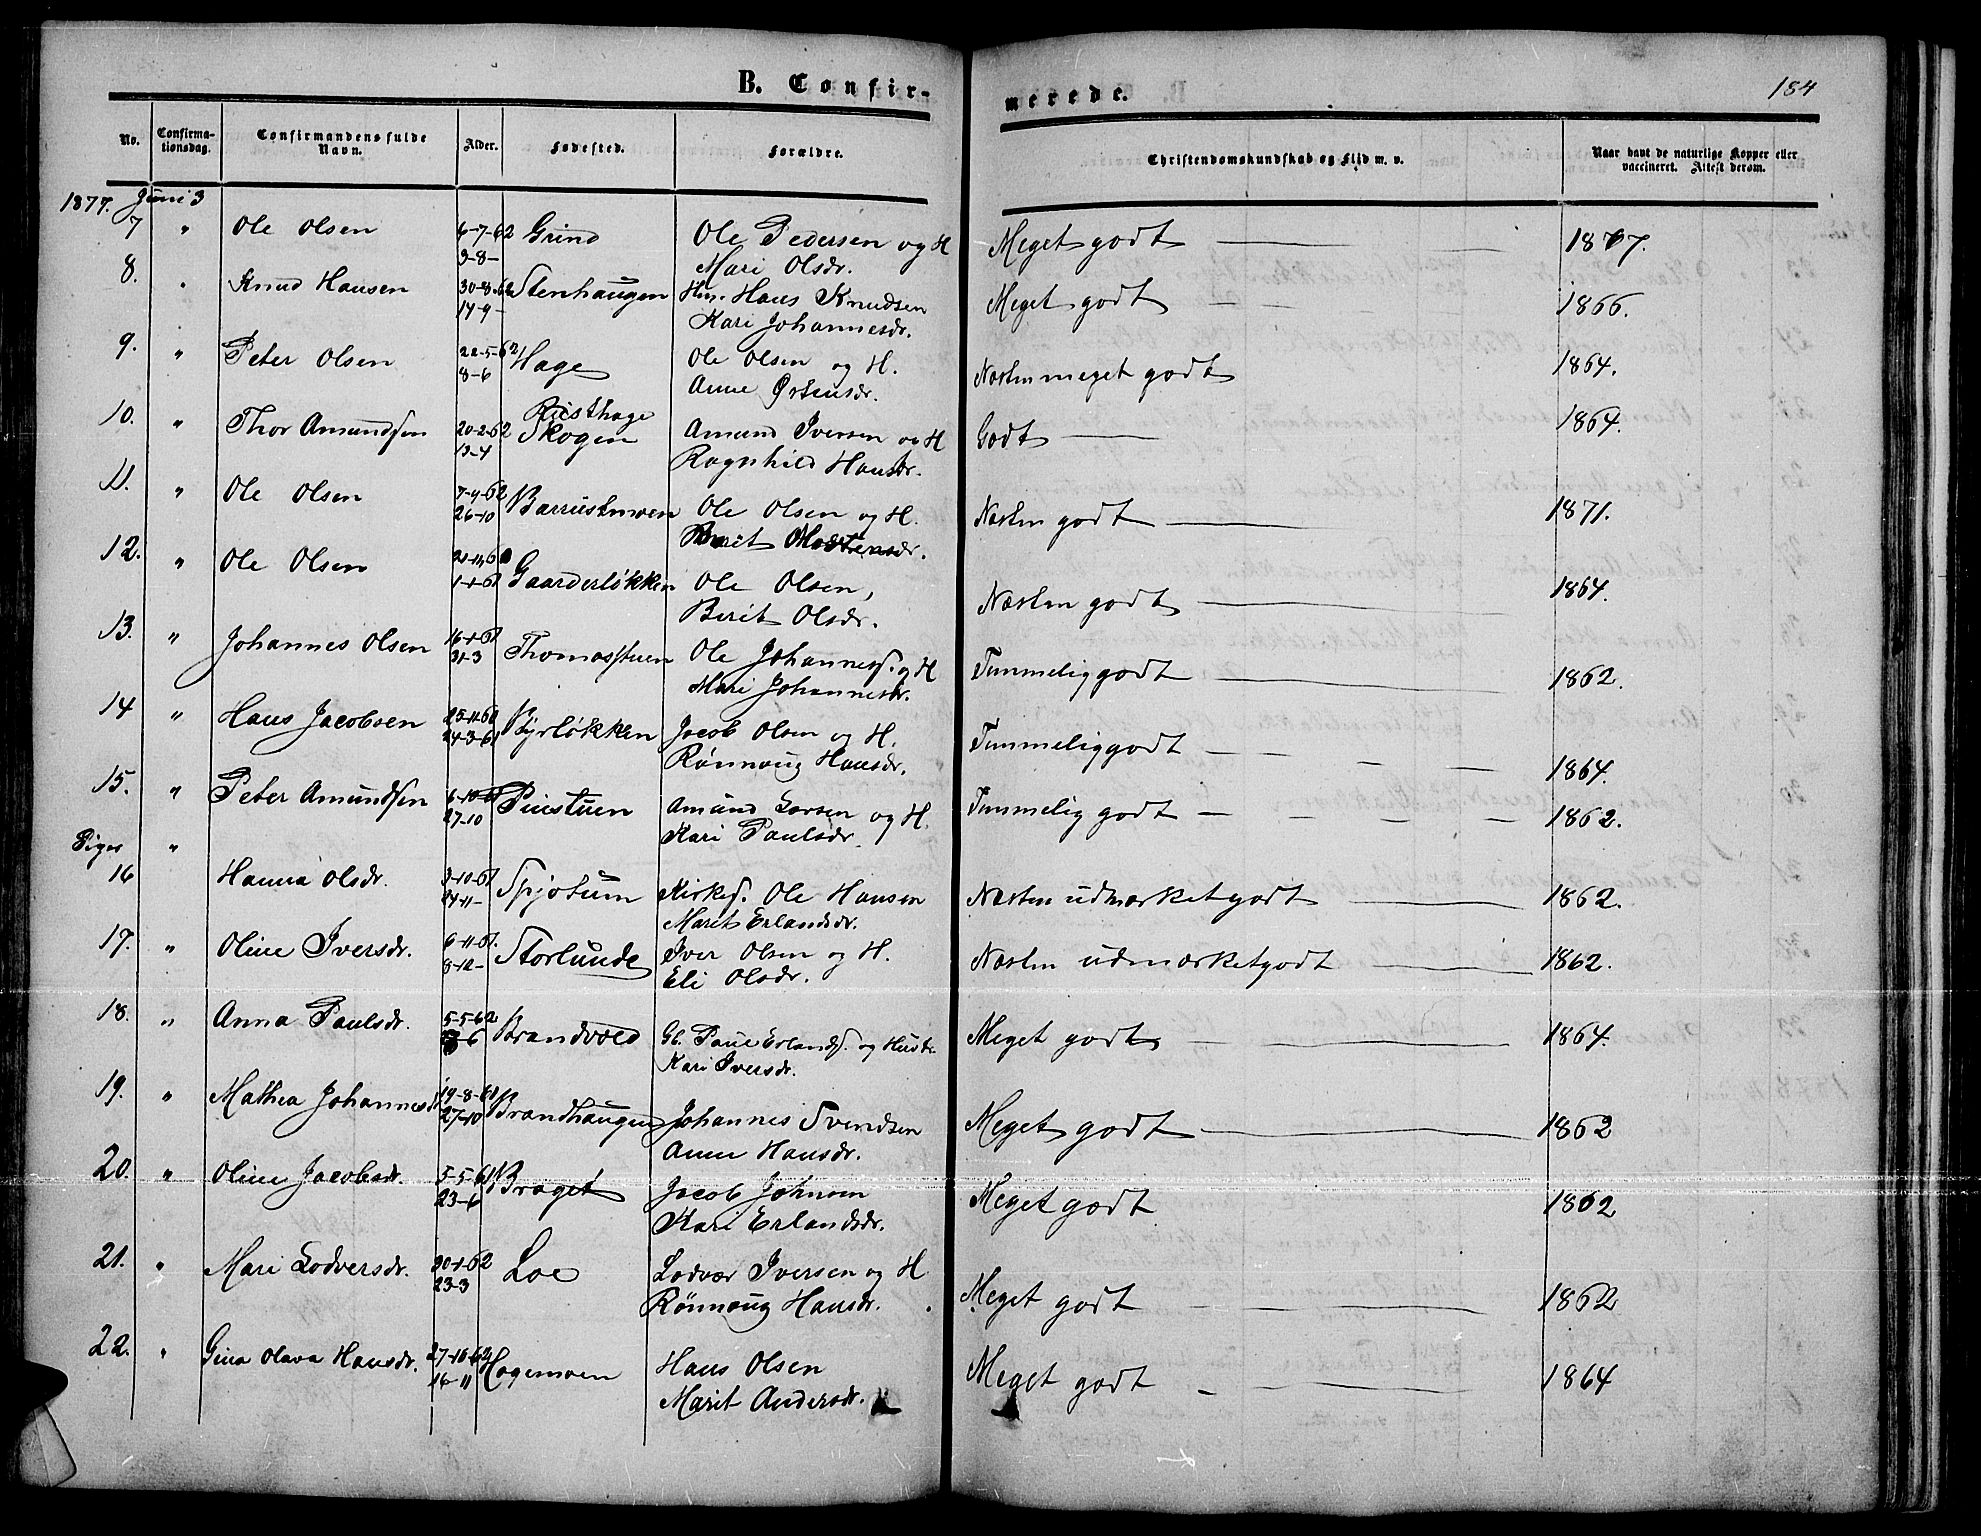 B. Confir-
merede.
184
No.
Confirma-
tionsdag.
Confirmandens fulde
Navn.
Alder.
Fødested.
Forældre.
Christendomskundskab og Flid m. v.
Naar havt de naturlige Kopper eller
vaccineret. Attest derom.
1877. Juni 3
7 " Ole Olsen 6-7-62 Grind Ole Pedersen og H Meget godt 1867.
3-8- Mari Olsdr.
8. " Knud Hansen 30-8-62 Stenhaugen Hm. Hans Knudsen Meget godt 1866.
14-9- Kari Johannesdr.
9. " Peter Olsen 22-5-62 Hage Ole Olsen og H. Næsten meget godt 1864.
8-6 Anne Østensdr.
10. " Thor Amundsen 20-2-62 Rusthage Skogen Amund Iversen og H Godt 1864.
13-4 Ragnhild Hansdr.
11. " Ole Olsen 7-9-62 Barrustmoen Ole Olsen og H. Næsten godt 1871.
26-10 Berit
12. " Ole Olsen Gaarderløkken Ole Olsen, Næsten godt 1864.
1-1-61 Berit Olsdr.
13. " Johannes Olsen 16-1-61 Thomasstuen Ole Johanness. og H Temmelig godt 1862.
31-3 Mari Johannesdr.
14 " Hans Jacobsen 25-11-60 Byrløkken Jacob Olsen og H. Temmelig godt 1864.
24-3-61 Rønnaug Hansdr.
15. " Peter Amundsen 6-10-61 Piustuen Amund Larsen og H. Temmelig godt 1862.
27-10 Kari Paulsdr.
Piger "
16 Hanna Olsdr. 3-10-61 Spjotum Kirkes. Ole Hansen Næsten udmærket godt 1862.
24-11- Marit Erlandsdr.
17. " Oline Iversdr. 6-11-61. Storlunde Iver Olsen og H. Næsten udmærket godt 1862.
8-12- Eli Olsdr.
18. " Anna Paulsdr. 5-5-62 Brandvold Gb. Paul Erlands. og Hustr. Meget godt 1864.
-6 Kari Iversdr.
19. " Mathea Johannesdr 19-8-61 Brandhaugen Johannes Svendsen Meget godt 1862
27-10 Anne Hansdr.
20. " Oline Jacobsdr. 5-5-61 Braget Jacob Johnsen Meget godt 1862
23-6 Kari Erlandsdr.
21. " Mari Lodversdr. 30-1-62 Loe Lodvær Iversen og H Meget godt 1862
23-3 Rønnaug Hansdr.
22. " Gina Olava Hansdr. 27-10-62 Hagemoen Hans Olsen Meget godt 1864
16-11 Marit Andersdr.